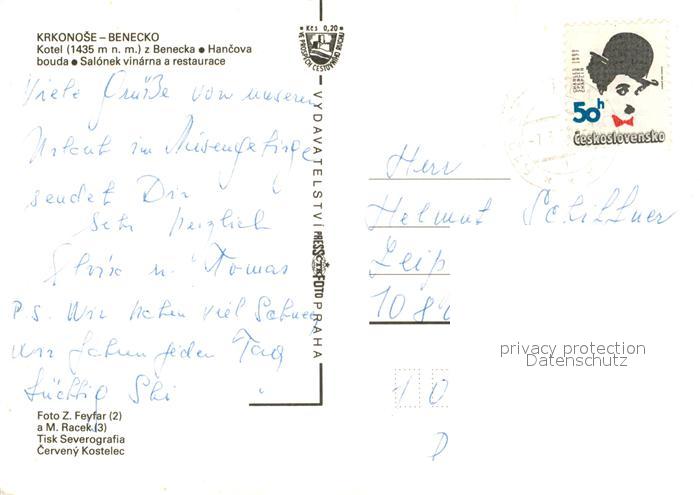 KRKONOŠE – BENECKO
Kotel (1435 m n. m.) z Benecka ● Hančova
bouda ● Salónek vinárna a restaurace
Viele Grüße von unserem
Urlaub im Riesengebirge
sendet Dir
sehr herzlich
Elvira u. Tomas
P.S. Wir haben viel Schnee
wir fahren jeden Tag
tüchtig Ski
Foto Z. Feyfar (2)
a M. Racek (3)
Tisk Severografia
Červený Kostelec
Kčs 0,20
VE PROSPĚCH CESTOVNÍHO RUCHU
VYDAVATELSTVÍ PRESSFOTO PRAHA
50h
Československo
Herr
Helmut Schittner
Leip
108
privacy protection
Datenschutz